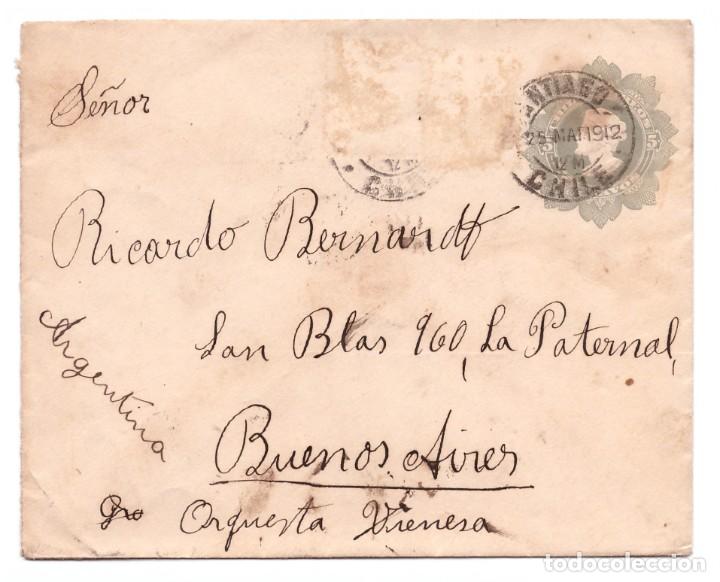 Señor
SANTIAGO
25 MAI 1912
12 M
CHILE
12 M
CHILE
5 5
Ricardo Bernardt
San Blas 960, La Paternal,
Argentina
Buenos Aires
Orquesta Vienesa
todocoleccion